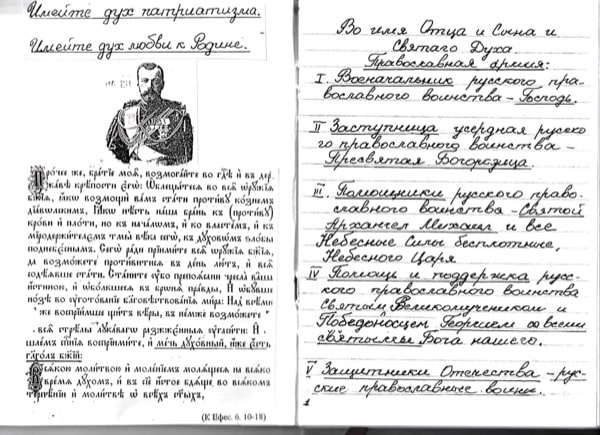 Имейте дух патриатизма.
Имейте дух любви к Родине.
Про́чее же, бра́тїе моѧ̀, возмога́йте во гдⷭ҇ѣ и҆ въ дер-
жа́вѣ крѣ́пости є҆гѡ̀: Ѡ҆блецы́тесѧ во всѧ̑ ѻ҆рꙋ̑жїѧ
бж҃їѧ, ꙗ҆́кѡ возмощѝ ва́мъ ста́ти проти́вꙋ ко́знемъ
дїа́вѡльскимъ, Ꙗ҆́кѡ нѣ́сть на́ша бра́нь къ (проти́вꙋ)
кро́ви и҆ пло́ти, но къ нача́лѡмъ, и҆ ко власте́мъ, и҆ къ
мїродержи́телємъ тмы̀ вѣ́ка сегѡ̀, къ дꙋховѡ́мъ ѕло́бы
поднебє́снымъ. Сегѡ̀ ра́ди прїими́те всѧ̑ ѻ҆рꙋ̑жїѧ бж҃їѧ,
да возмо́жете проти́витисѧ въ де́нь лю́тъ, и҆ всѧ̑
содѣ́ѧвше ста́ти. Ста́ните ᲂу҆̀бо препоѧ́сани чресла̀ ва̑ша
и҆́стиною, и҆ ѡ҆бо́лкшесѧ въ бронѧ̀ пра́вды, И҆ ѡ҆бꙋ́вше
но́зѣ во ᲂу҆гото́ванїе бл҃говѣствова́нїѧ ми́ра: Над̾ всѣ́ми
же воспрїи́мше щи́тъ вѣ́ры, въ не́мже возмо́жете
всѧ̑ стрѣ́лы лꙋка́вагѡ разжжє́нныѧ ᲂу҆гаси́ти: И҆
шле́мъ сп҃се́нїѧ воспрїими́те, и҆ ме́чь дꙋхо́вный, и҆́же є҆́сть
гл҃го́лъ бж҃їй:
Всѧ́кою моли́твою и҆ моле́нїемъ молѧ́щесѧ на всѧ́ко
вре́мѧ дꙋ́хомъ, и҆ въ сїѐ и҆́стое бдѧ́ще во всѧ́комъ
терпѣ́нїи и҆ моли́твѣ ѡ҆ всѣ́хъ ст҃ы́хъ,
(К Ефес. 6, 10-18)
Во имя Отца и Сына и
Святаго Духа.
Православная армия:
I. Военачальник русского пра-
вославного воинства – Господь.
II Заступница усердная русско
го православного воинства –
Пресвятая Богородица.
III. Помощники русского право-
славного воинства – Святой
Архангел Михаил и все
Небесные Силы бесплотные,
Небесного Царя
IV Помощь и поддержка русс-
кого православного воинства
святым Великомучеником и
Победоносцем Георгием со всеми
святыми Бога нашего.
V Защитники Отечества – рус-
ские православные воины.